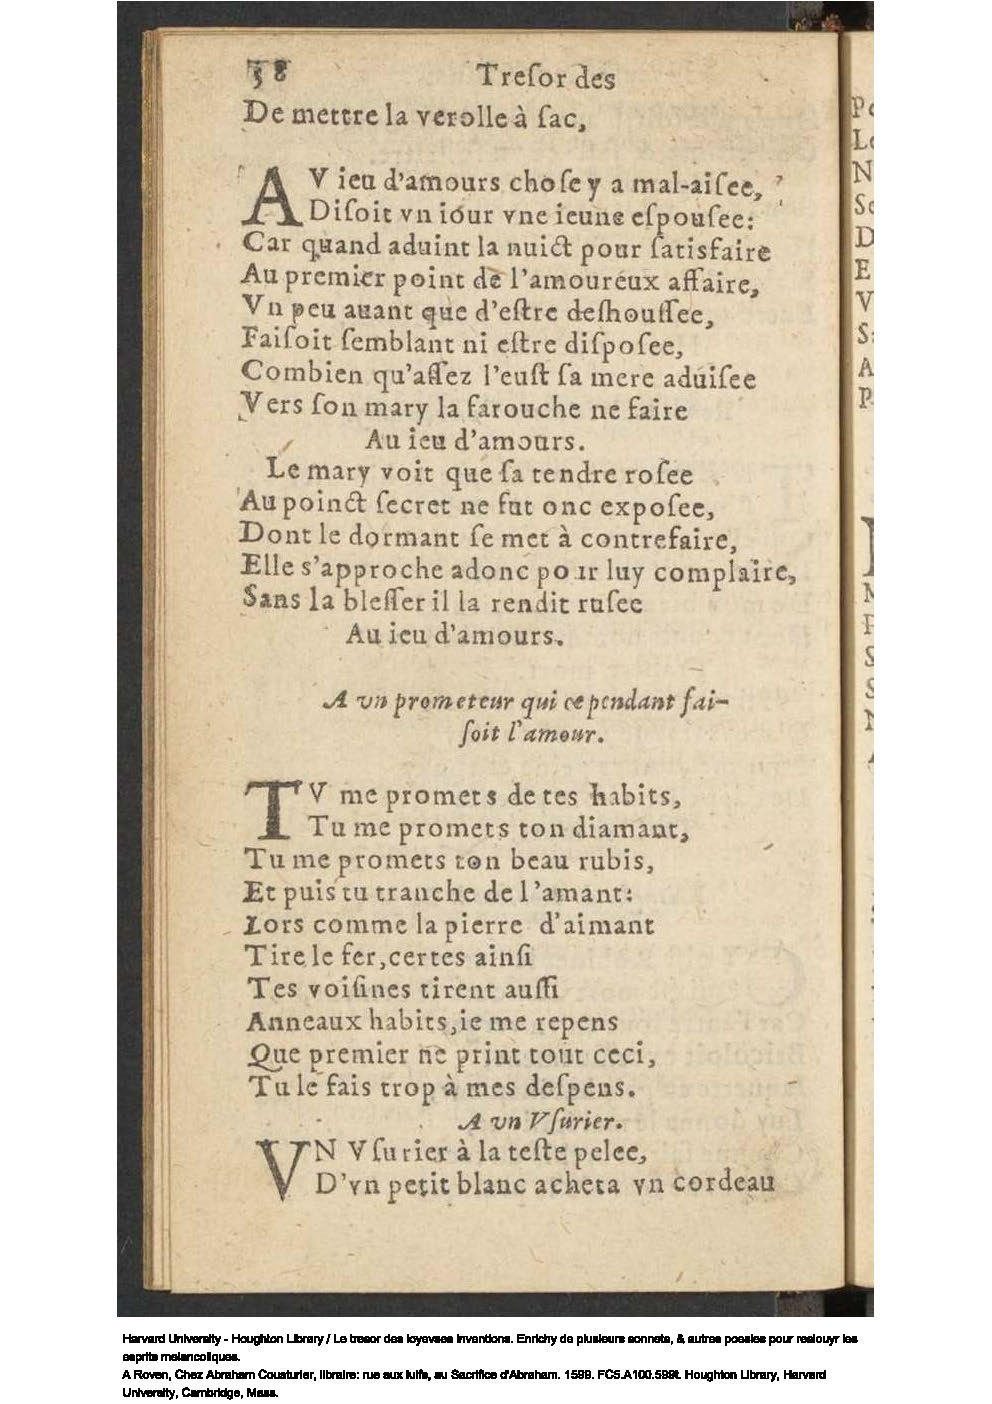 58 Treſor des
De mettre la verolle à ſac,
AV ieu d'amours choſe y a mal-aiſee,
Diſoit vn iour vne ieune eſpouſee:
Car quand aduint la nuict pour ſatisfaire
Au premier point de l'amoureux affaire,
Vn peu auant que d'eſtre deſhouſſee,
Faiſoit ſemblant ni eſtre diſpoſee,
Combien qu'aſſez l'euſt ſa mere aduiſee
Vers ſon mary la farouche ne faire
Au ieu d'amours.
Le mary voit que ſa tendre roſee
Au poinct ſecret ne fut onc expoſee,
Dont le dormant ſe met à contrefaire,
Elle s'approche adonc pour luy complaire,
Sans la bleſſer il la rendit ruſee
Au ieu d'amours.
A vn prometeur qui cependant fai-
ſoit l'amour.
TV me promets de tes habits,
Tu me promets ton diamant,
Tu me promets ton beau rubis,
Et puis tu tranche de l'amant:
Lors comme la pierre d'aimant
Tire le fer, certes ainſi
Tes voiſines tirent auſſi
Anneaux habits, ie me repens
Que premier ne print tout ceci,
Tu le fais trop à mes deſpens.
A vn Vſurier.
VN Vſurier à la teſte pelee,
D'vn petit blanc acheta vn cordeau
Harvard University - Houghton Library / Le tresor des ioyevses inventions. Enrichy de plusieurs sonnets, & autres poesies pour resiouyr les
esprits melancoliques.
A Roven, Chez Abraham Cousturier, libraire: rue aux Iuifs, au Sacrifice d'Abraham. 1599. FC5.A100.599t. Houghton Library, Harvard
University, Cambridge, Mass.